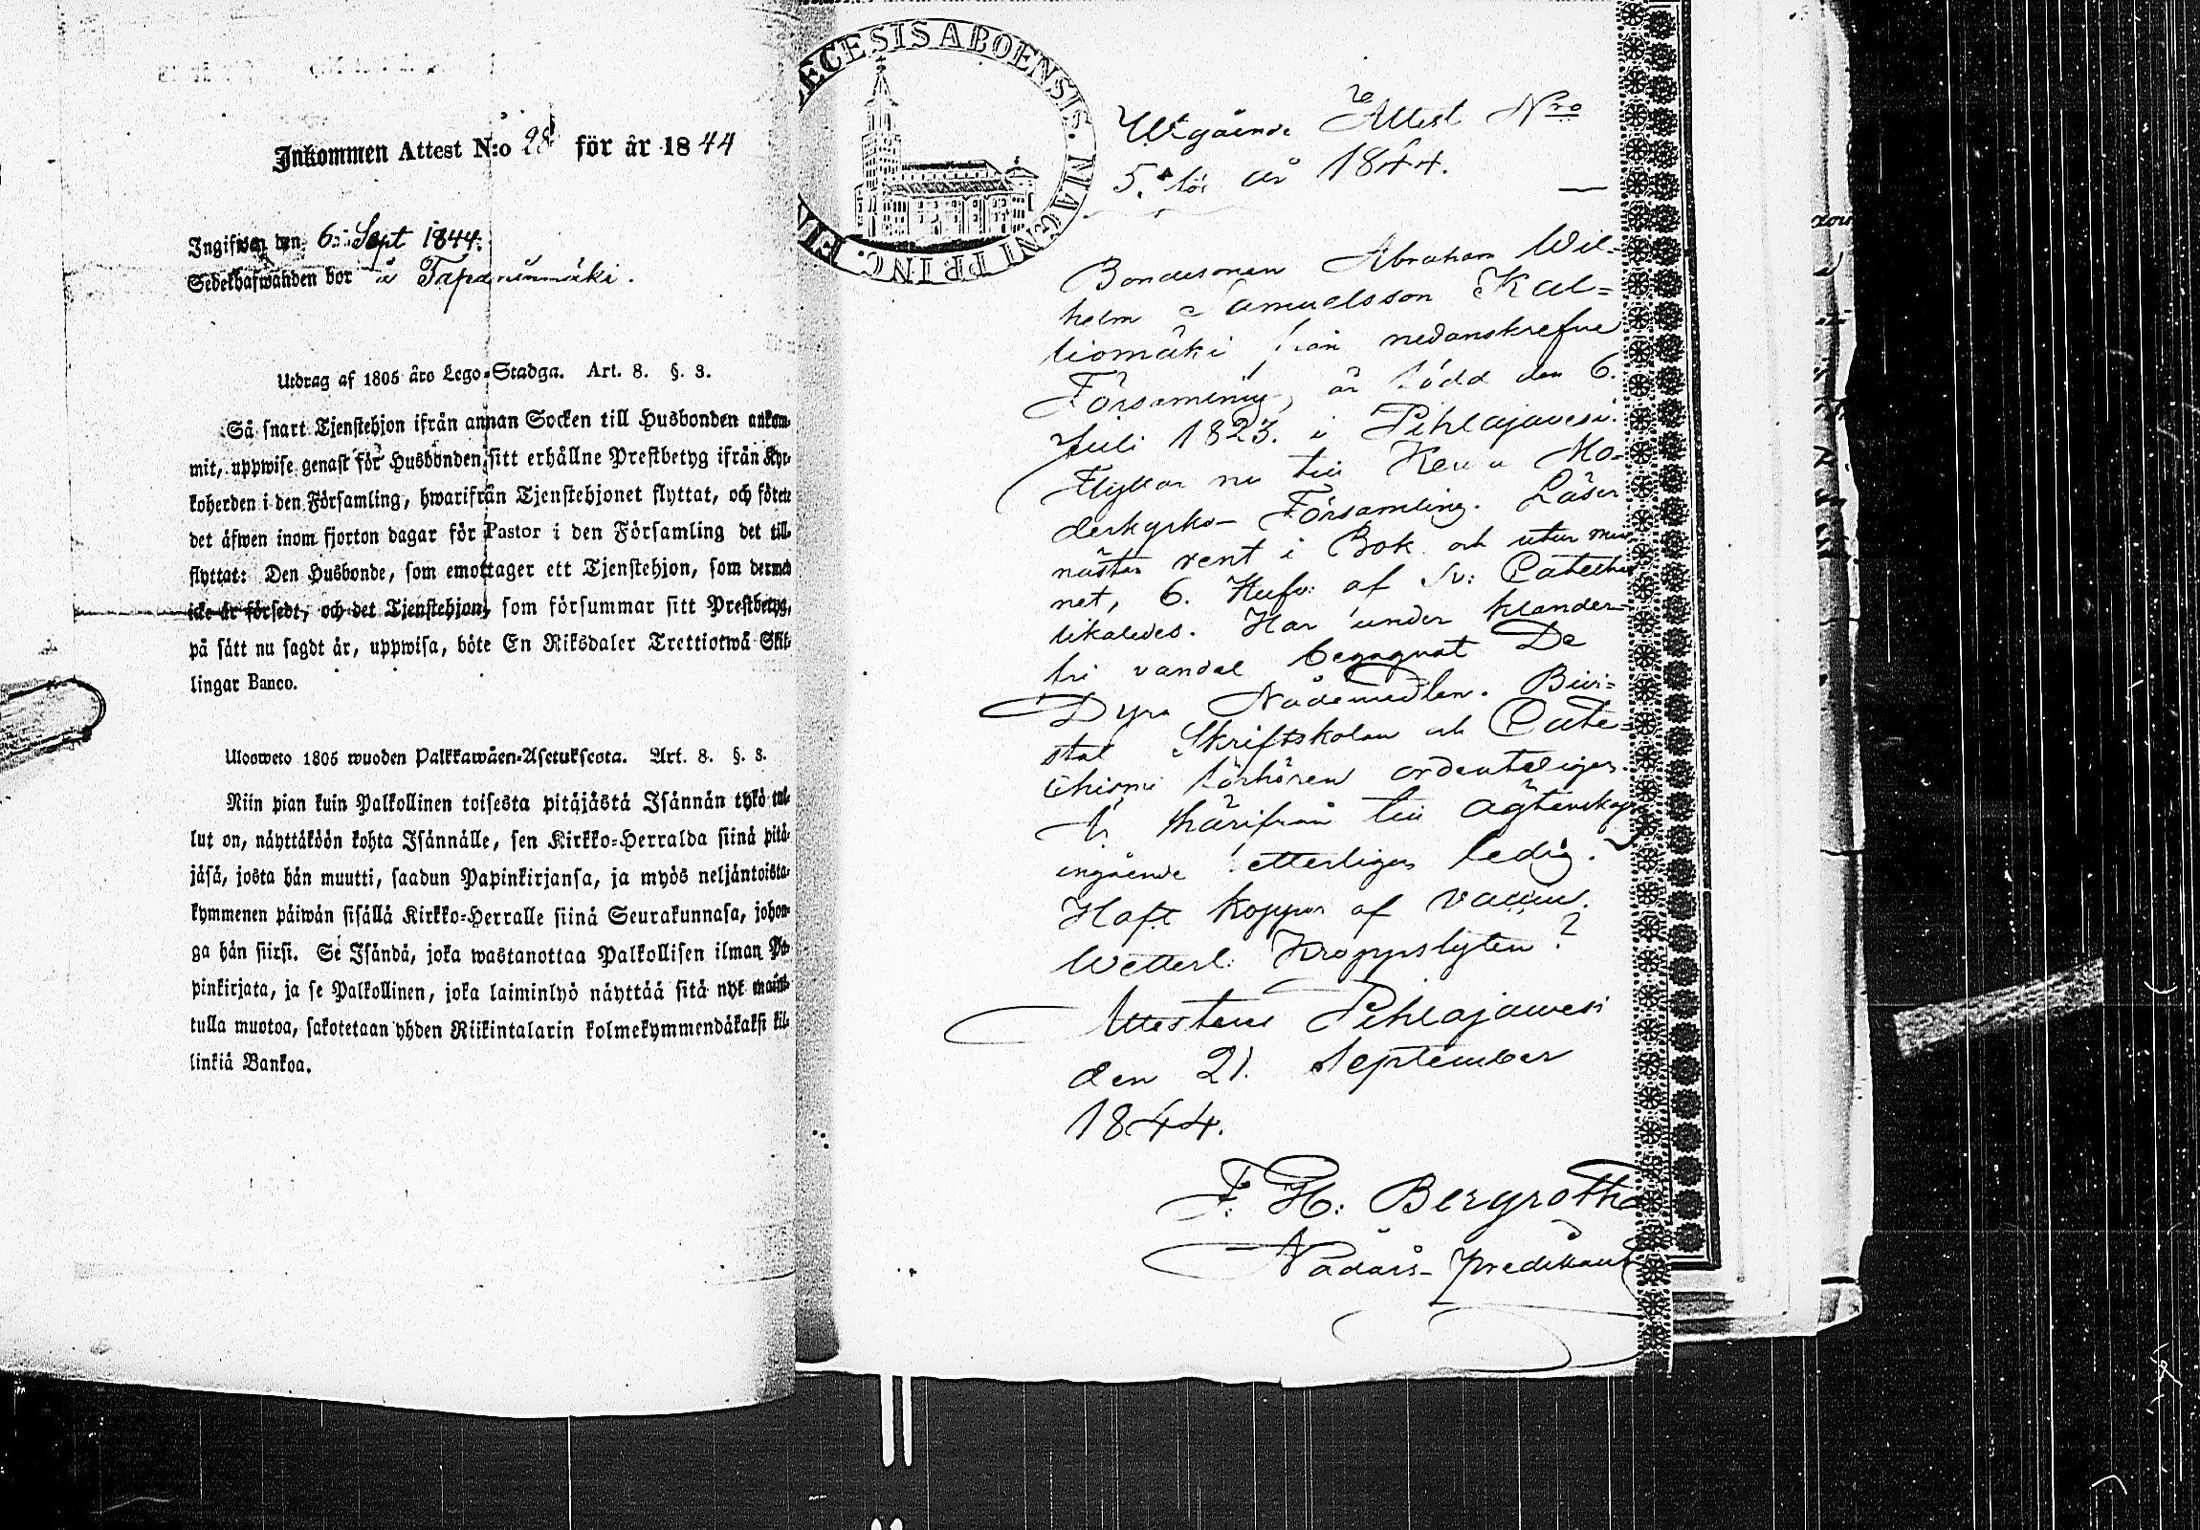 Inkommen Attest N:o 28 för år 1844
Ingifwen den 6 Sept 1844.
Sedelhafwanden bor i Tapaninmäki.
Utdrag af 1805 års Lego-Stadga. Art. 8. §. 3.
Så snart Tjenstehjon ifrån annan Socken till Husbonden ankom-
mit, uppwise genast för Husbonden sitt erhållne Prestbetyg ifrån Kyr-
koherden i den Församling, hwarifrån Tjenstehjonet flyttat, och förete
det äfwen inom fjorton dagar för Pastor i den Församling det till-
flyttat: Den Husbonde, som emottager ett Tjenstehjon, som dermed
icke är försedt, och det Tjenstehjon, som försummar sitt Prestbetyg,
på sätt nu sagdt är, uppwisa, böte En Riksdaler Trettiotwå Skil-
lingar Banco.
Ulosweto 1805 wuoden Palkkawäen-Asetuksesta. Art. 8. §. 3.
Niin pian kuin Palkollinen toisesta pitäjästä Isännän tykö tul-
lut on, näyttäköön kohta Isännälle, sen Kirkko-Herralda siinä pitä-
jäsä, josta hän muutti, saadun Papinkirjansa, ja myös neljäntoista-
kymmenen päiwän sisällä Kirkko-Herralle siinä Seurakunnasa, johon-
ga hän siirsi. Se Isändä, joka wastanottaa Palkollisen ilman Pa-
pinkirjata, ja se Palkollinen, joka laiminlyö näyttää sitä nyt mainit-
tulla muotoa, sakotetaan yhden Riikintalarin kolmekymmendäkaksi kil-
linkiä Bankoa.
ECESIS ABOENSIS. MAGNI PRINC. FIN
Utgående Attest Nro
5. för år 1844.
Bondesonen Abraham Wil-
helm Samuelsson Kal=
liomäki från nedanskrefne
Församling, är född den 6.
Juli 1823. i Pihlajavesi.
Flyttar nu till Keuru Mo-
derkyrko- Församling. Läser
nästan rent i Bok och utur min-
net, 6. Hufv: af Sv: Cateches
likaledes. Har under klander-
fri vandel begagnat De
Dyra Nådemedlen. Bivi=
stat Skriftskolan och Cate-
chismi förhören ordenteligen.
Är härifrån till ägtenskaps
ingående ledig.
Haft koppor af vaccin.
Wetterl. Kroppslyten?
Attesterar Pihlajawesi
den 21. September
1844.
F. H. Bergroth
Nådårs- predikant